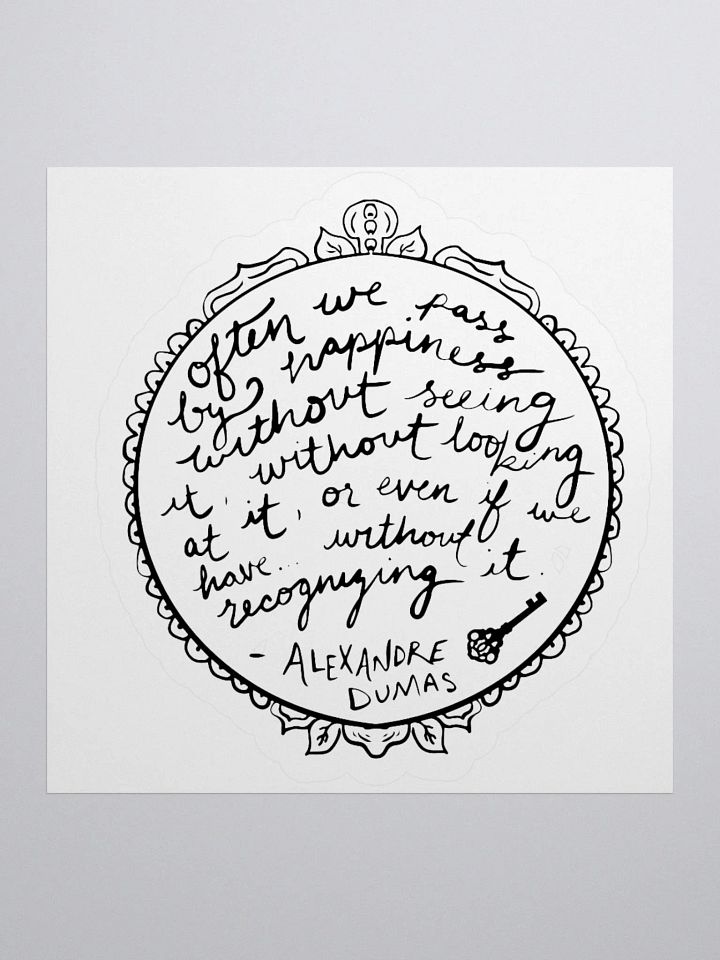 often we pass
by happiness
without seeing
it, without looking
at it, or even if we
have... without
recognizing it.
- ALEXANDRE
DUMAS